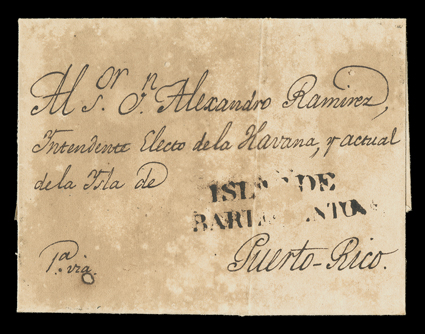 Al S.or D.n Alexandro Ramirez,
Intendente Electo de la Havana, y actual
de la Isla de
ISLAS DE
BARLOVENTO
Puerto-Rico.
P.a via